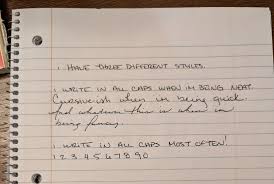 I HAVE THREE DIFFERENT STYLES.
I WRITE IN ALL CAPS WHEN IM BEING NEAT.
Cursiveish when im being quick.
And whatever this is when im
being fancy.
I WRITE IN ALL CAPS MOST OFTEN!
1 2 3 4 5 6 7 8 9 0